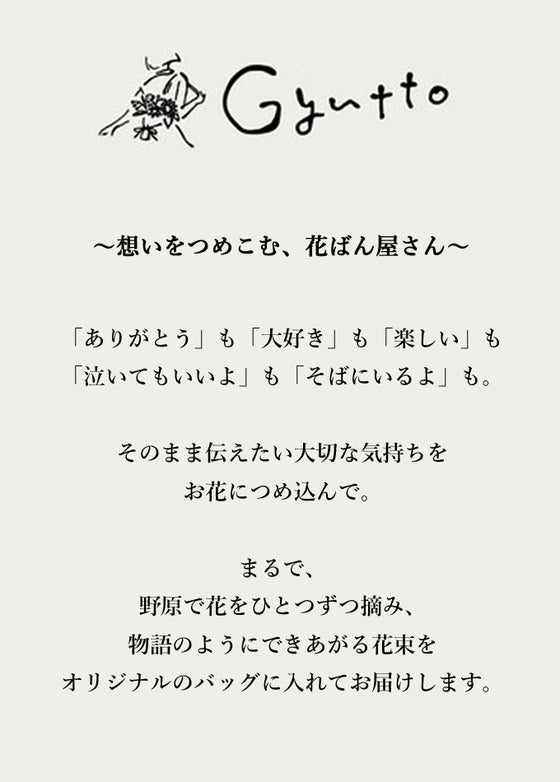 Gyutto
～想いをつめこむ、花ばん屋さん～
「ありがとう」も「大好き」も「楽しい」も
「泣いてもいいよ」も「そばにいるよ」も。
そのまま伝えたい大切な気持ちを
お花につめ込んで。
まるで、
野原で花をひとつずつ摘み、
物語のようにできあがる花束を
オリジナルのバッグに入れてお届けします。